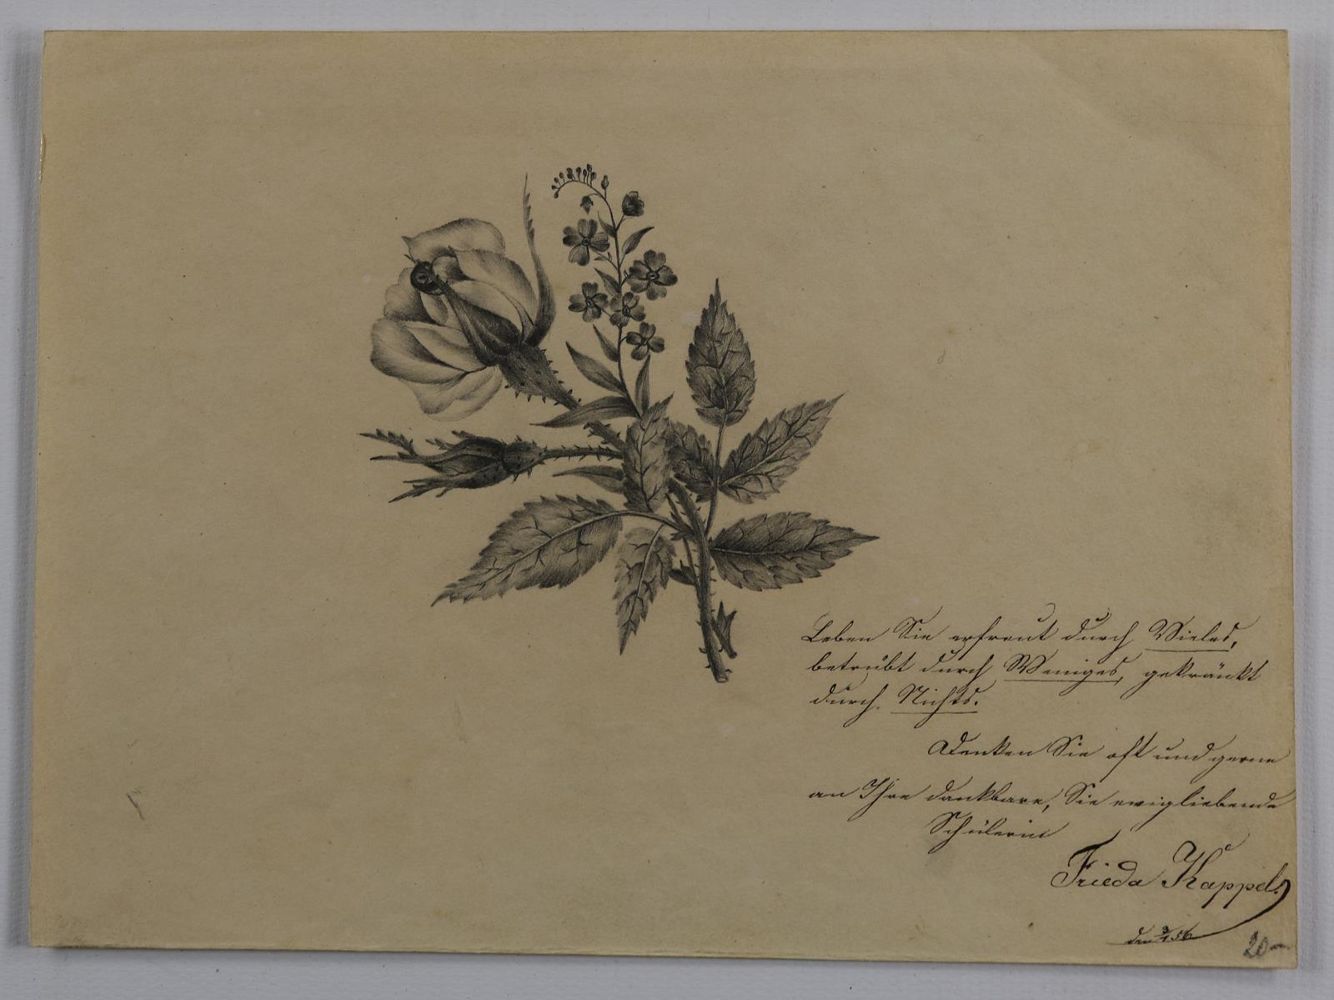 Leben Sie erfreut durch Vieles,
betrübt durch Weniges, gekränkt
durch Nichts.
Denken Sie oft und gerne
an Ihre dankbare, Sie ewigliebende
Schülerin
Frieda Kappel.
den 3/4 56
20—